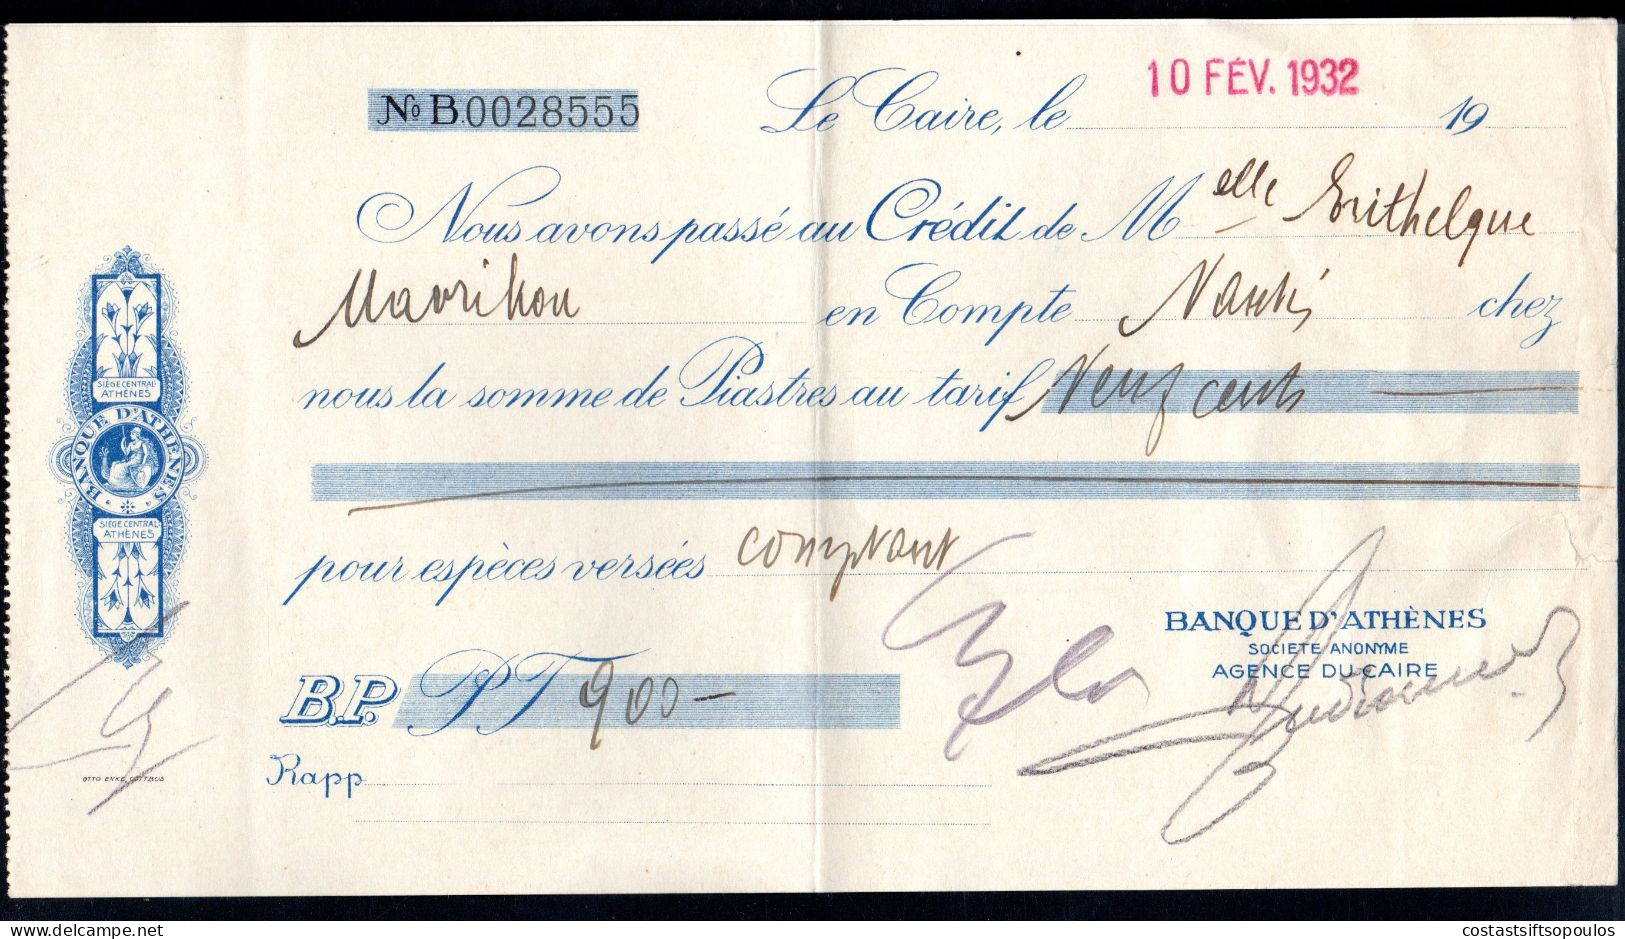 10 FÉV. 1932
No B.0028555
Le Caire, le 19
Nous avons passé au Crédit de Melle
Mavrikou en Compte chez
nous la somme de Piastres au tarif Neuf cents
pour espèces versées comptant
B.P. PT 900-
Rapp
BANQUE D'ATHÈNES
SOCIÉTÉ ANONYME
AGENCE DU CAIRE
SIÈGE CENTRAL
ATHÈNES
BANQUE D'ATHÈNES
SIÈGE CENTRAL
ATHÈNES
OTTO ENKE, COTTBUS
delcampe.net
costastsiftsopoulos